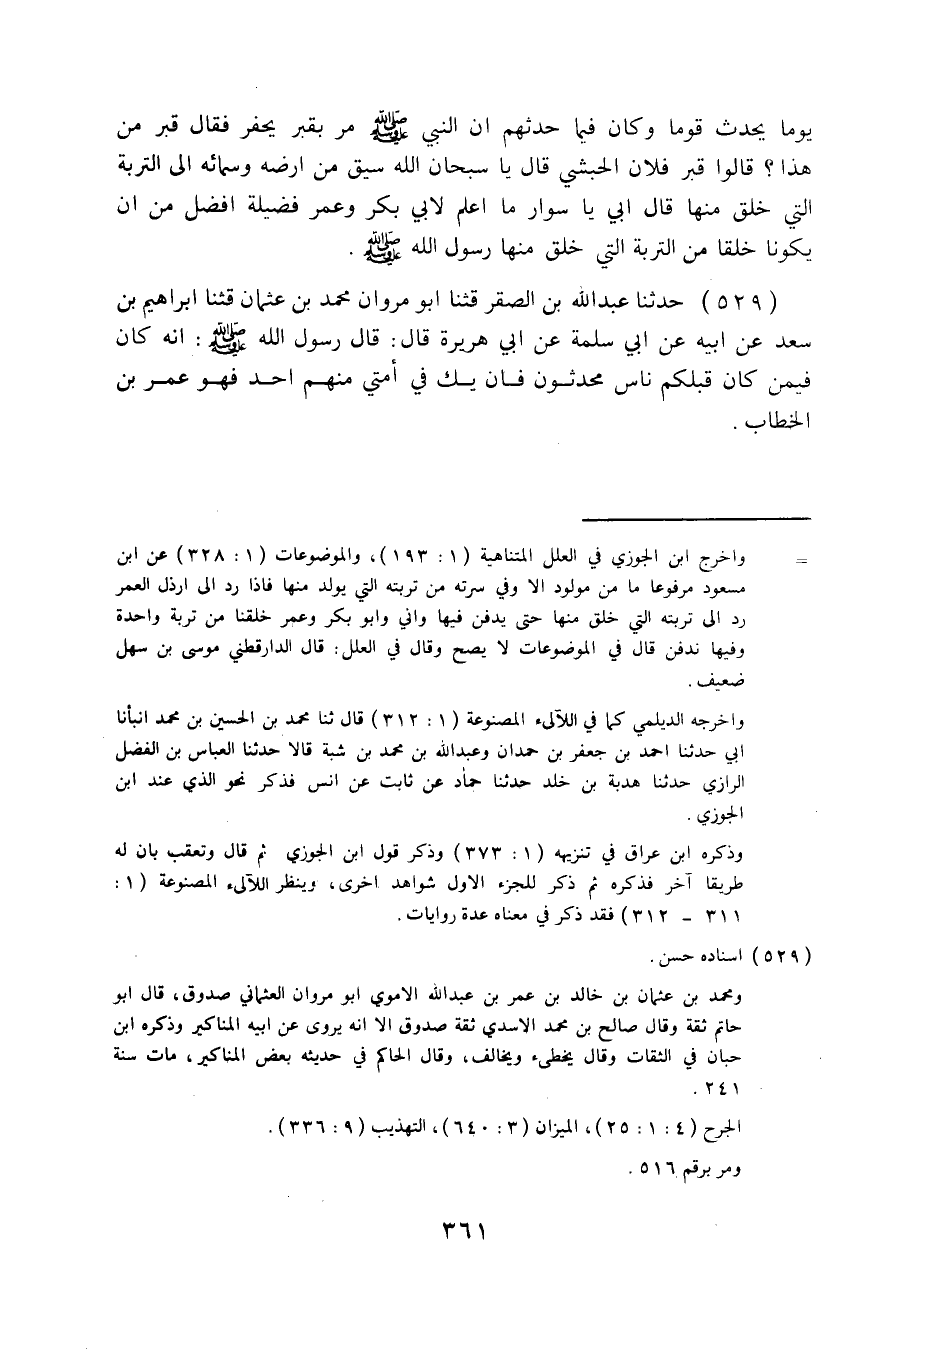 يوما يحدث قوما وكان فيما حدثهم ان النبي ﷺ مر بقبر يحفر فقال قبر من
هذا؟ قالوا قبر فلان الحبشي قال يا سبحان الله سيق من ارضه وسمائه الى التربة
التي خلق منها قال ابي يا سوار ما اعلم لابي بكر وعمر فضيلة افضل من ان
يكونا خلقا من التربة التي خلق منها رسول الله ﷺ .
(٥٢٩) حدثنا عبدالله بن الصقر قثنا ابو مروان محمد بن عثمان قثنا ابراهيم بن
سعد عن ابيه عن ابي سلمة عن ابي هريرة قال: قال رسول الله ﷺ : انه كان
فيمن كان قبلكم ناس محدثون فان يك في أمتي منهم احد فهو عمر بن
الخطاب .
= واخرج ابن الجوزي في العلل المتناهية (١ : ١٩٣)، والموضوعات (١ : ٣٢٨) عن ابن
مسعود مرفوعا ما من مولود الا وفي سرته من تربته التي يولد منها فاذا رد الى ارذل العمر
رد الى تربته التي خلق منها حتى يدفن فيها واني وابو بكر وعمر خلقنا من تربة واحدة
وفيها ندفن قال في الموضوعات لا يصح وقال في العلل: قال الدارقطني موسى بن سهل
ضعيف .
واخرجه الديلمي كما في اللآلىء المصنوعة (١ : ٣١٢) قال ثنا محمد بن الحسين بن محمد انبأنا
ابي حدثنا احمد بن جعفر بن حمدان وعبدالله بن محمد بن شبة قالا حدثنا العباس بن الفضل
الرازي حدثنا هدبة بن خلد حدثنا حماد عن ثابت عن انس فذكر نحو الذي عند ابن
الجوزي .
وذكره ابن عراق في تنزيهه (١ : ٣٧٣) وذكر قول ابن الجوزي ثم قال وتعقب بان له
طريقا آخر فذكره ثم ذكر للجزء الاول شواهد اخرى، وينظر اللآلىء المصنوعة (١ :
٣١١ - ٣١٢) فقد ذكر في معناه عدة روايات .
(٥٢٩) اسناده حسن .
ومحمد بن عثمان بن خالد بن عمر بن عبدالله الاموي ابو مروان العثماني صدوق، قال ابو
حاتم ثقة وقال صالح بن محمد الاسدي ثقة صدوق الا انه يروى عن ابيه المناكير وذكره ابن
حبان في الثقات وقال يخطىء ويخالف، وقال الحاكم في حديثه بعض المناكير، مات سنة
٢٤١ .
الجرح (٤ : ١ : ٢٥)، الميزان (٣ : ٦٤٠)، التهذيب (٩ : ٣٣٦) .
ومر برقم ٥١٦ .
٣٦١